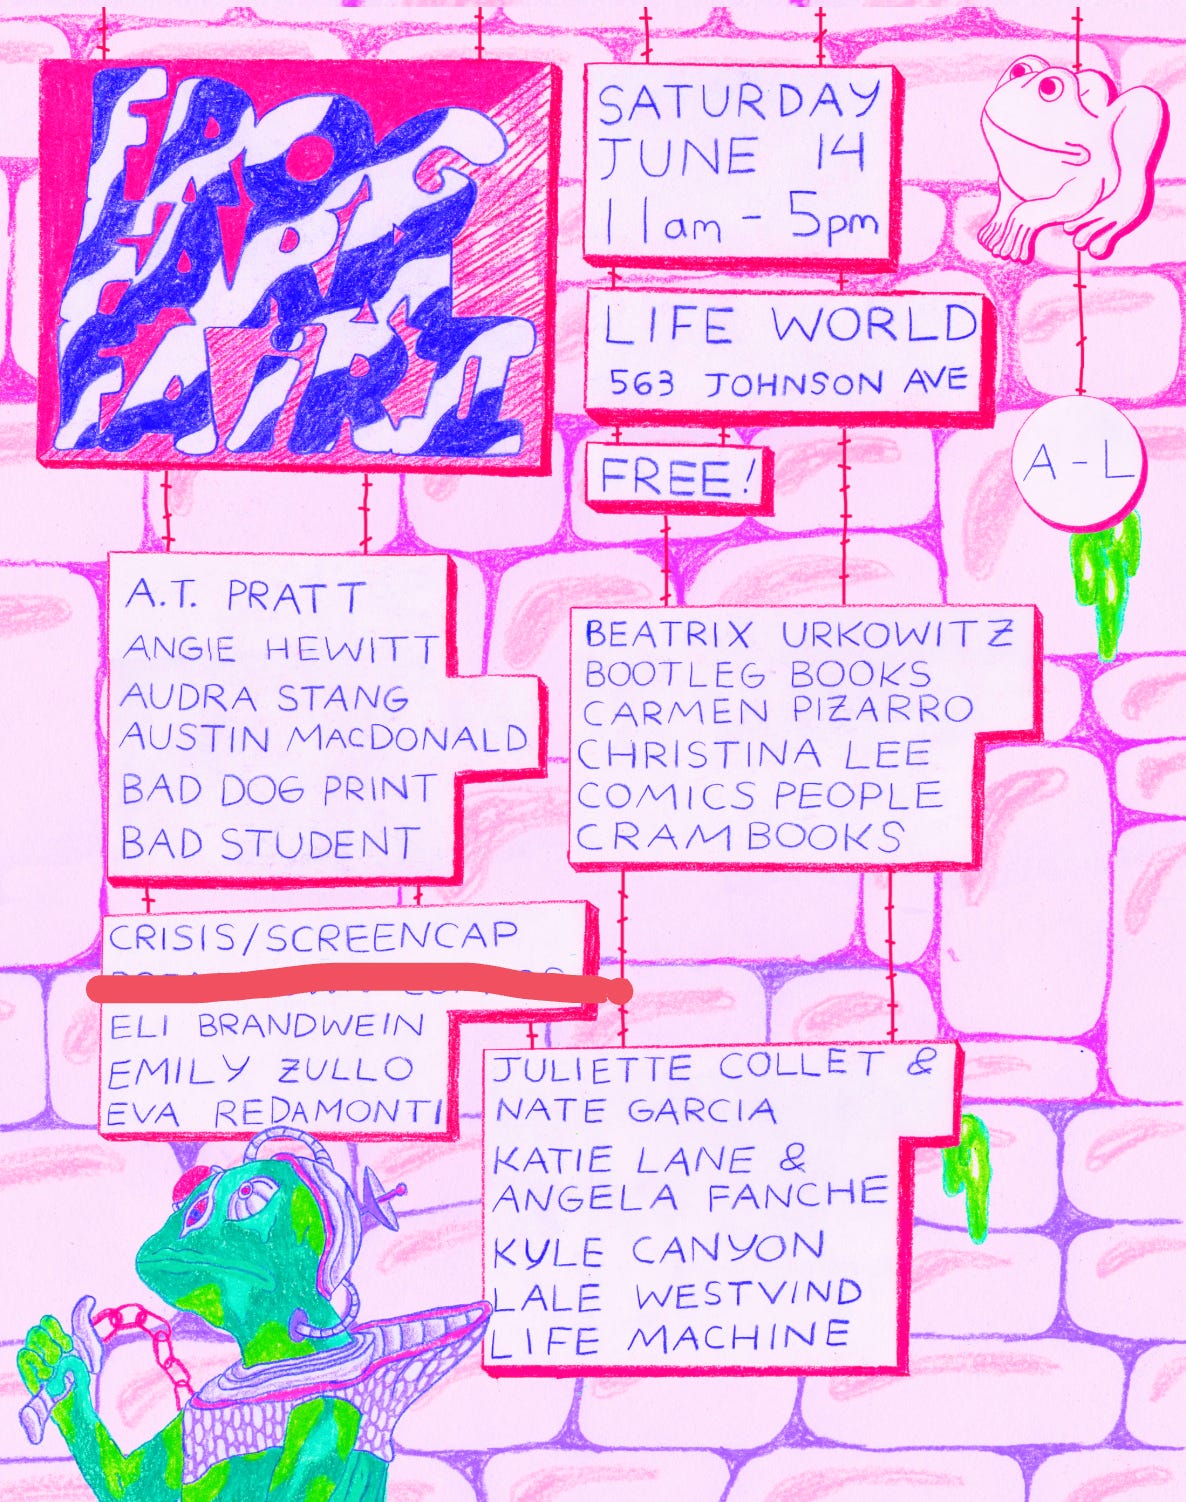 FROG
FARM
FAiR II
SATURDAY
JUNE 14
11am - 5pm
LIFE WORLD
563 JOHNSON AVE
FREE!
A - L
A.T. PRATT
ANGIE HEWITT
AUDRA STANG
AUSTIN MACDONALD
BAD DOG PRINT
BAD STUDENT
BEATRIX URKOWITZ
BOOTLEG BOOKS
CARMEN PIZARRO
CHRISTINA LEE
COMICS PEOPLE
CRAM BOOKS
CRISIS/SCREENCAP
ELI BRANDWEIN
EMILY ZULLO
EVA REDAMONTI
JULIETTE COLLET &
NATE GARCIA
KATIE LANE &
ANGELA FANCHE
KYLE CANYON
LALE WESTVIND
LIFE MACHINE